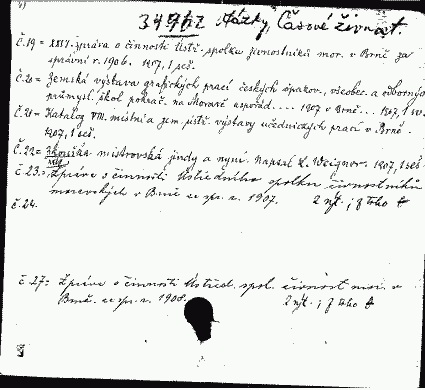 34962 Otázky, Časové živnost.
č.19 = XXIV. zpráva o činnosti Ústř. spolku živnostníků mor. v Brně za
správní r. 1906. 1907, 1 seš.
č.20 = Zemská výstava grafických prací českých opakov., všeobec. a odborných
průmysl. škol pokrač. na Moravě uspořád.... 1907 v Brně... 1907, 1 sv.
č.21 = Katalog VIII. místní a zem. ústř. výstavy učednických prací v Brně.
1907, 1 seš.
č.22 = Zkouška mistrovská jindy a nyní. Napsal L. Weigner. 1907, 1 seš.
č.23. = Zpráva o činnosti Ústředního spolku živnostníků
moravských v Brně ze spr. r. 1907. 2 výt. ; z toho
č.24.
č.27: = Zpráva o činnosti Ústřed. spol. živnost. mor. v
Brně. ze spr. r. 1908. 2 výt. ; z toho